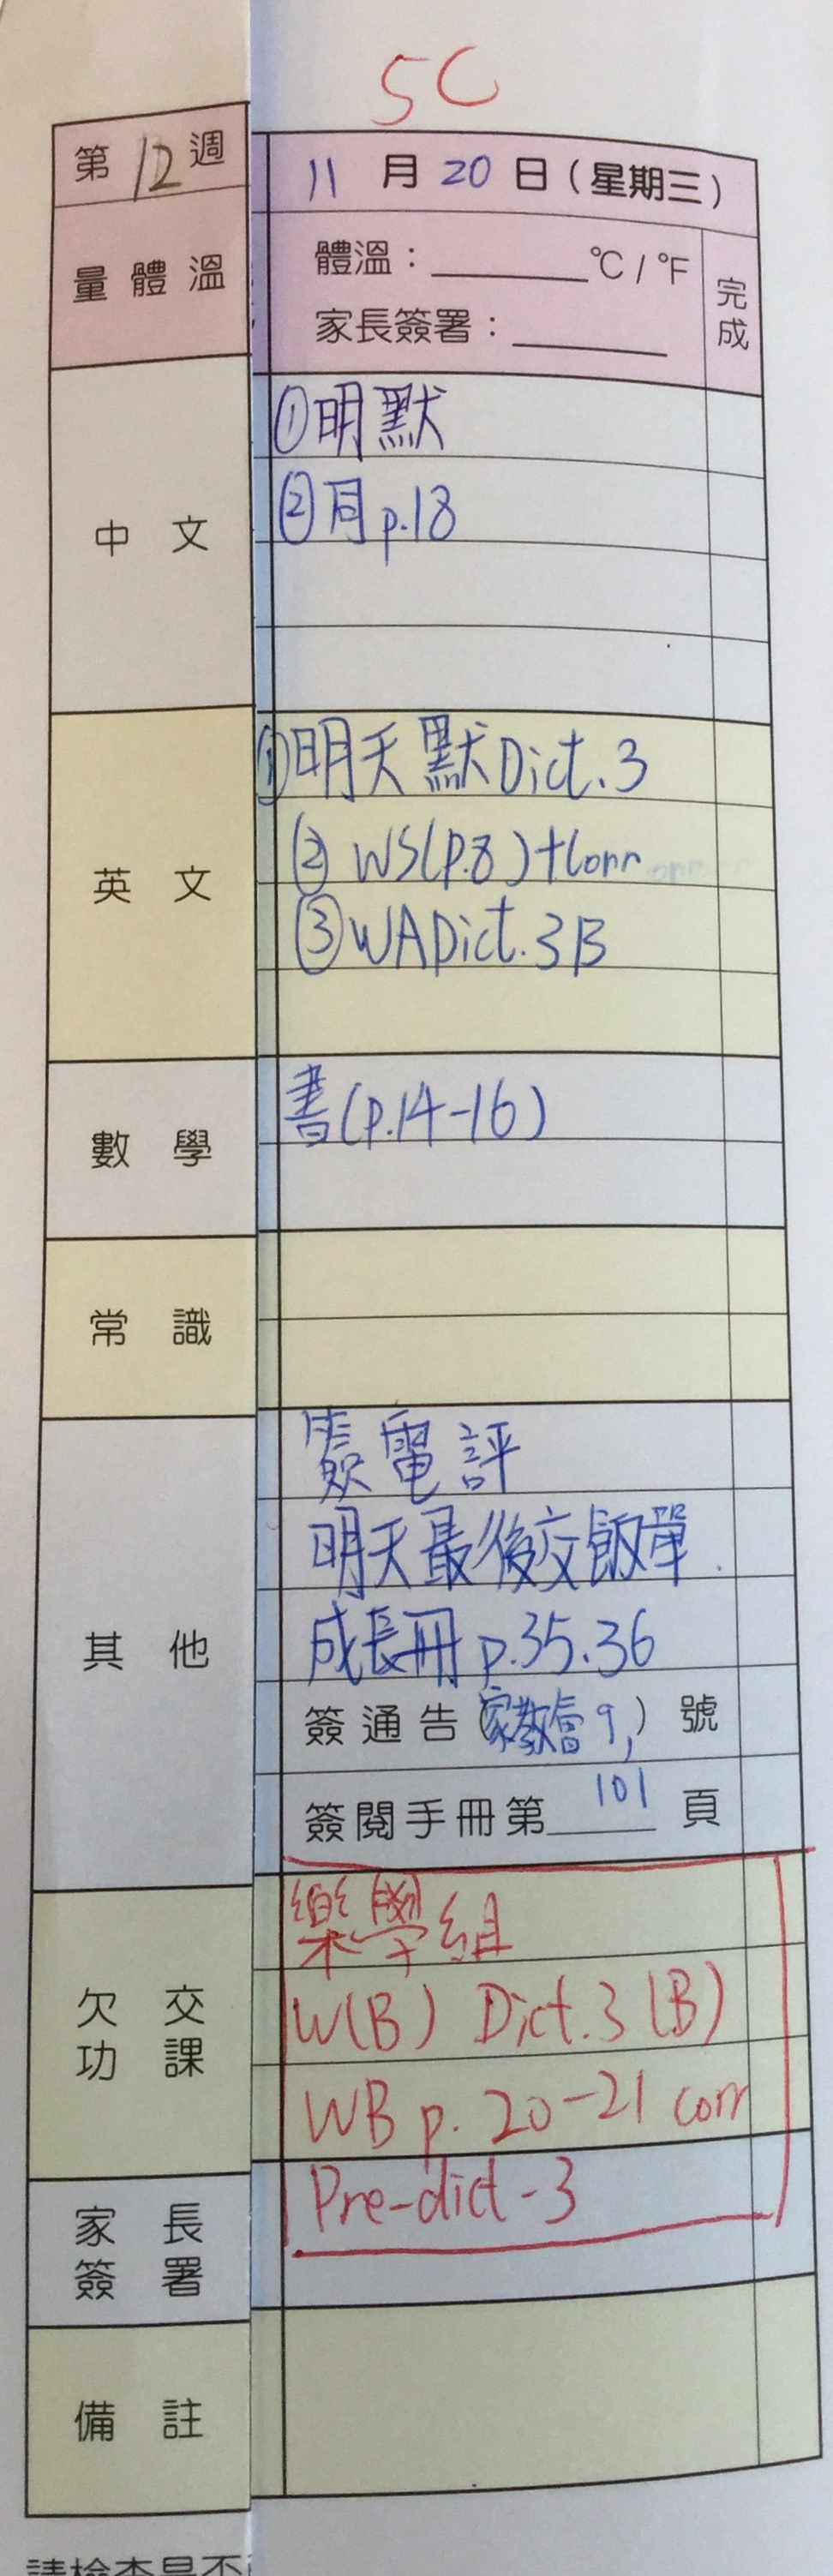 5C
第 12 週
11 月 20 日 (星期三)
量體溫
體溫：______°C / °F
家長簽署：______
完成
中文
①明默
② p.18
英文
①明天默Dict.3
② WS(p.8)+Corr
③WADict.3B
數學
書(p.14-16)
常識
其他
電評
明天最後交飯單
成長冊 p.35.36
簽通告(家教會9,) 號
簽閱手冊第 101 頁
欠交功課
樂學組
W(B) Dict.3 (B)
WB p. 20-21 corr
Pre-dict-3
家長簽署
備註
請檢查是否